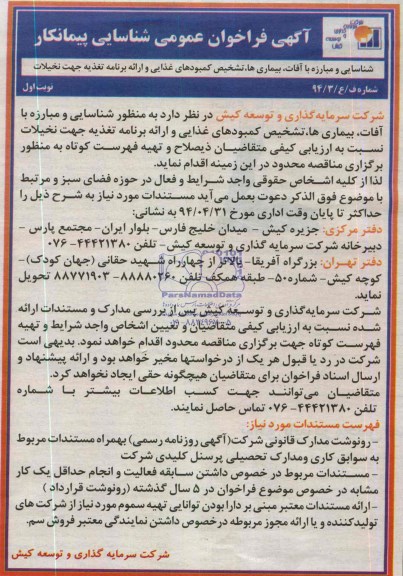 آگهی فراخوان عمومی شناسایی پیمانکار
شناسایی و مبارزه با آفات، بیماری ها، تشخیص کمبودهای غذایی و ارائه برنامه تغذیه جهت نخیلات
شماره ف/ع/۹۴/۳
نوبت اول
شرکت سرمایه‌گذاری و توسعه کیش در نظر دارد به منظور شناسایی و مبارزه با
آفات، بیماری ها، تشخیص کمبودهای غذایی و ارائه برنامه تغذیه جهت نخیلات
نسبت به ارزیابی کیفی متقاضیان ذیصلاح و تهیه فهرست کوتاه به منظور
برگزاری مناقصه محدود در این زمینه اقدام نماید.
لذا از کلیه اشخاص حقوقی واجد شرایط و فعال در حوزه فضای سبز و مرتبط
با موضوع فوق الذکر دعوت بعمل می‌آید مستندات مورد نیاز به شرح ذیل را
حداکثر تا پایان وقت اداری مورخ ۹۴/۰۴/۳۱ به نشانی:
دفتر مرکزی: جزیره کیش - میدان خلیج فارس - بلوار ایران - مجتمع پارس -
دبیرخانه شرکت سرمایه گذاری و توسعه کیش - تلفن ۴۴۴۲۱۳۸۰-۰۷۶
دفتر تهران: بزرگراه آفریقا - بالاتر از چهارراه شهید حقانی (جهان کودک)-
کوچه کیش - شماره۵۰- طبقه همکف تلفن ۸۸۸۸۰۲۶۰- ۸۸۷۷۱۹۰۳ تحویل
نماید.
ParsNamadData
شرکت سرمایه‌گذاری و توسعه کیش پس از بررسی مدارک و مستندات ارائه
شده نسبت به ارزیابی کیفی متقاضیان و تعیین اشخاص واجد شرایط و تهیه
فهرست کوتاه جهت برگزاری مناقصه محدود اقدام خواهد نمود. بدیهی است
شرکت در رد یا قبول هر یک از درخواستها مخیر خواهد بود و ارائه پیشنهاد و
ارسال اسناد فراخوان برای متقاضیان هیچگونه حقی ایجاد نخواهد کرد.
متقاضیان می‌توانند جهت کسب اطلاعات بیشتر با شماره
تلفن ۴۴۴۲۱۳۸۰-۰۷۶ تماس حاصل نمایند.
فهرست مستندات مورد نیاز:
- رونوشت مدارک قانونی شرکت(آگهی روزنامه رسمی) بهمراه مستندات مربوط
به سوابق کاری ومدارک تحصیلی پرسنل کلیدی شرکت
- مستندات مربوط در خصوص داشتن سابقه فعالیت و انجام حداقل یک کار
مشابه در خصوص موضوع فراخوان در ۵ سال گذشته (رونوشت قرارداد )
- ارائه مستندات معتبر مبنی بر دارا بودن توانایی تهیه سموم مورد نیاز از شرکت های
تولیدکننده و یا ارائه مجوز مربوطه درخصوص داشتن نمایندگی معتبر فروش سم.
شرکت سرمایه گذاری و توسعه کیش